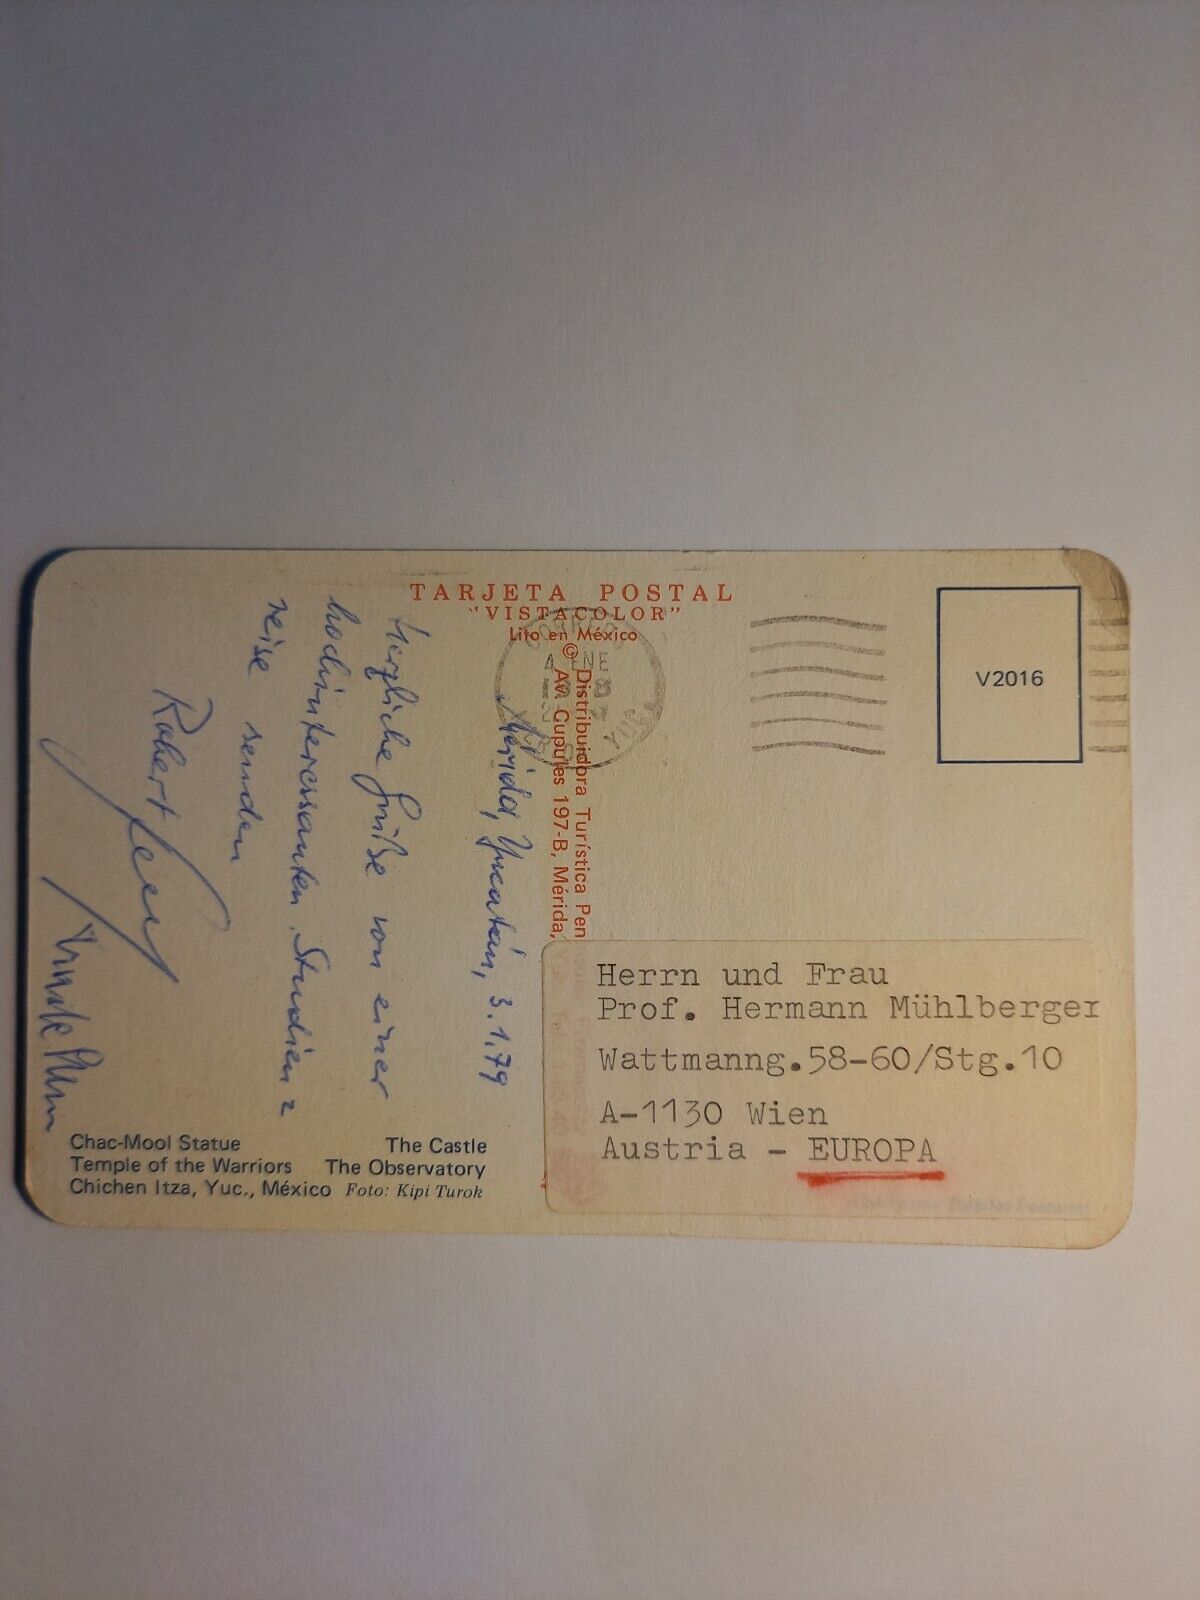 TARJETA POSTAL
"VISTACOLOR"
Lito en México
© Distribuidora Turística
Av. Cupules 197-B, Mérida,
CORREOS
4 ENE
V2016
Mérida, Yucatán, 3.1.79
Herzliche Grüße von einer
hochinteressanten Studien=
reise senden
Robert
Herrn und Frau
Prof. Hermann Mühlberger
Wattmanng.58-60/Stg.10
A-1130 Wien
Austria - EUROPA
Chac-Mool Statue The Castle
Temple of the Warriors The Observatory
Chichen Itza, Yuc., México Foto: Kipi Turok